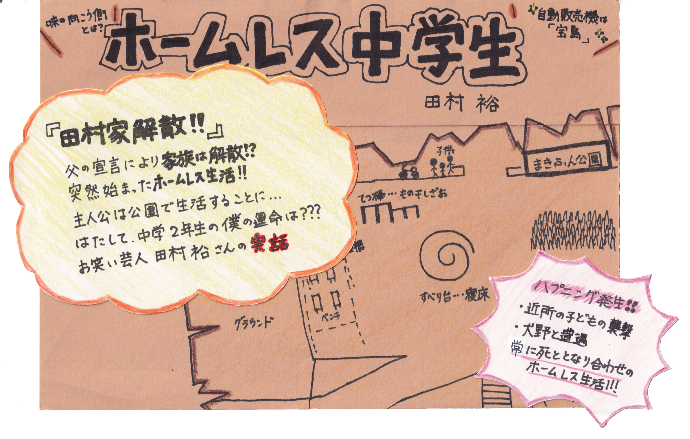 味の向こう側
とは?
ホームレス中学生
自動販売機は
「宝島」
田村 裕
『田村家解散!!』
父の宣言により家族は解散!?
突然始まったホームレス生活!!
主人公は公園で生活することに…
はたして、中学2年生の僕の運命は???
お笑い芸人 田村 裕さんの実話
子供
まきふん公園
てつ棒…もの干しざお
すべり台…寝床
グラウンド
ベンチ
ハプニング発生!!
・近所の子どもの襲撃
・犬野と遭遇
常に死ととなり合わせの
ホームレス生活!!!